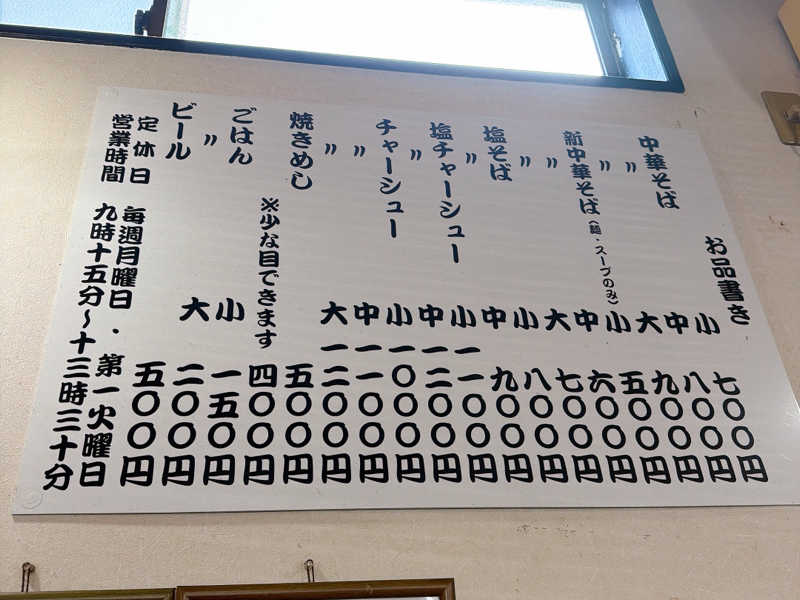 お品書き
中華そば 小 七〇〇円
〃 中 八〇〇円
〃 大 九〇〇円
新中華そば(麺・スープのみ) 小 五〇〇円
〃 中 六〇〇円
〃 大 七〇〇円
塩そば 小 八〇〇円
〃 中 九〇〇円
塩チャーシュー 小 一一〇〇円
〃 中 一二〇〇円
チャーシュー 小 一〇〇〇円
〃 中 一一〇〇円
〃 大 一二〇〇円
焼きめし 五〇〇円
※少な目できます 四〇〇円
ごはん 小 一五〇円
〃 大 二〇〇円
ビール 五〇〇円
定休日 毎週月曜日・第一火曜日
営業時間 九時十五分〜十三時三十分